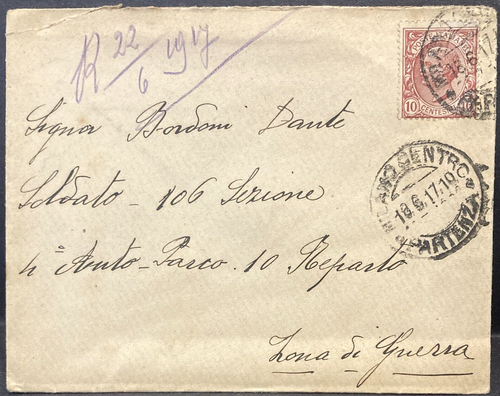 R 22/6 1917
10 CENTES
MILANO CENTRO
18.6.17.19
PARTENZA
Signor Bordoni Dante
Soldato - 106 Sezione
4° Auto-Parco. 10 Reparto
Zona di Guerra